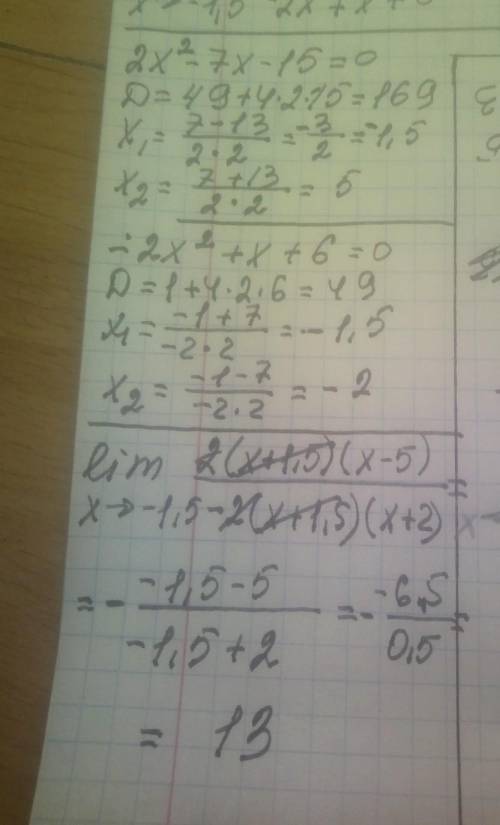 2x² - 7x - 15 = 0
D = 49 + 4·2·15 = 169
x₁ = (7 - 13)/(2·2) = -3/2 = -1,5
x₂ = (7 + 13)/(2·2) = 5
-2x² + x + 6 = 0
D = 1 + 4·2·6 = 49
x₁ = (-1 + 7)/(-2·2) = -1,5
x₂ = (-1 - 7)/(-2·2) = -2
lim x→-1,5 2(x+1,5)(x-5)/-2(x+1,5)(x+2) =
= - (-1,5 - 5)/(-1,5 + 2) = - (-6,5)/(0,5) =
= 13